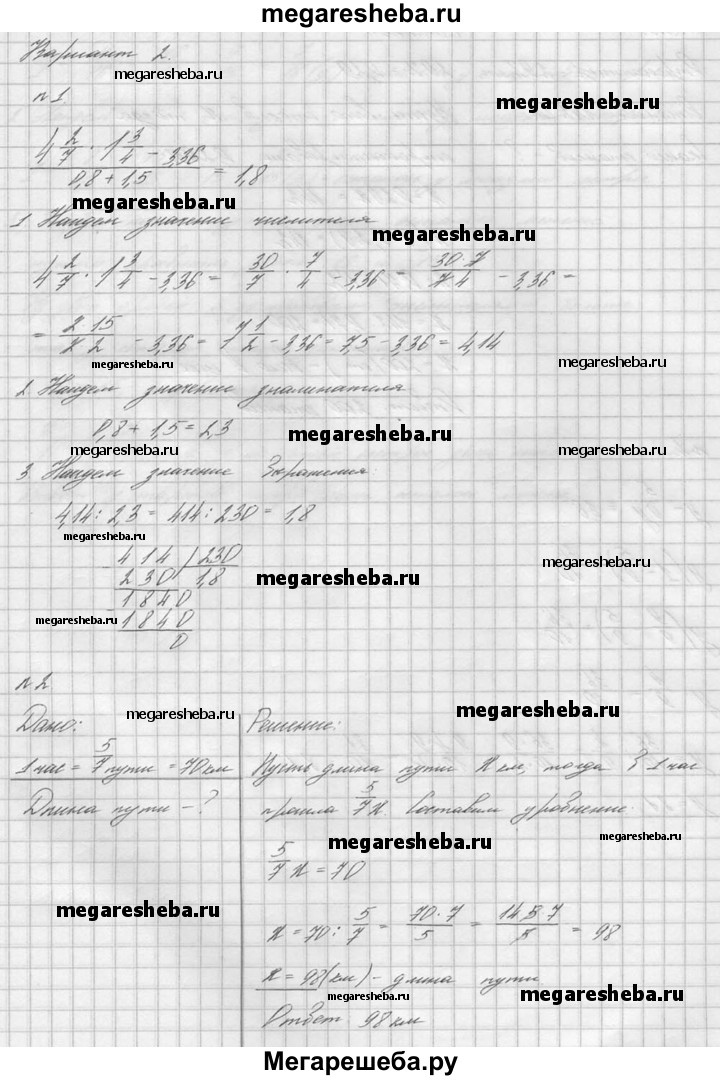 megaresheba.ru
Вариант 2.
megaresheba.ru
n 1
megaresheba.ru
4 2/7 · 1 3/4 - 3,36
0,8 + 1,5
= 1,8
megaresheba.ru
1 Найдем значение числителя
megaresheba.ru
4 2/7 · 1 3/4 - 3,36 = 30/7 · 7/4 - 3,36 = 30·7/7·4 - 3,36 =
= 2·15/2·2 - 3,36 = 7 1/2 - 3,36 = 7,5 - 3,36 = 4,14
megaresheba.ru
megaresheba.ru
2 Найдем значение знаменателя
0,8 + 1,5 = 2,3
megaresheba.ru
megaresheba.ru
megaresheba.ru
3 Найдем значение выражения:
4,14 : 2,3 = 414 : 230 = 1,8
megaresheba.ru
megaresheba.ru
414 230
230 1,8
megaresheba.ru
1840
1840
megaresheba.ru
0
n 2
megaresheba.ru
megaresheba.ru
Дано:
1 час = 5/7 пути = 70 км
Длина пути - ?
Решение:
Пусть длина пути x км, тогда в 1 час
прошла 5/7 x. Составим уравнение:
megaresheba.ru
megaresheba.ru
5/7 x = 70
megaresheba.ru
x = 70 : 5/7 = 70·7/5 = 14·5·7/5 = 98
x = 98 (км) - длина пути
megaresheba.ru
megaresheba.ru
Ответ: 98 км
Мегарешеба.ру